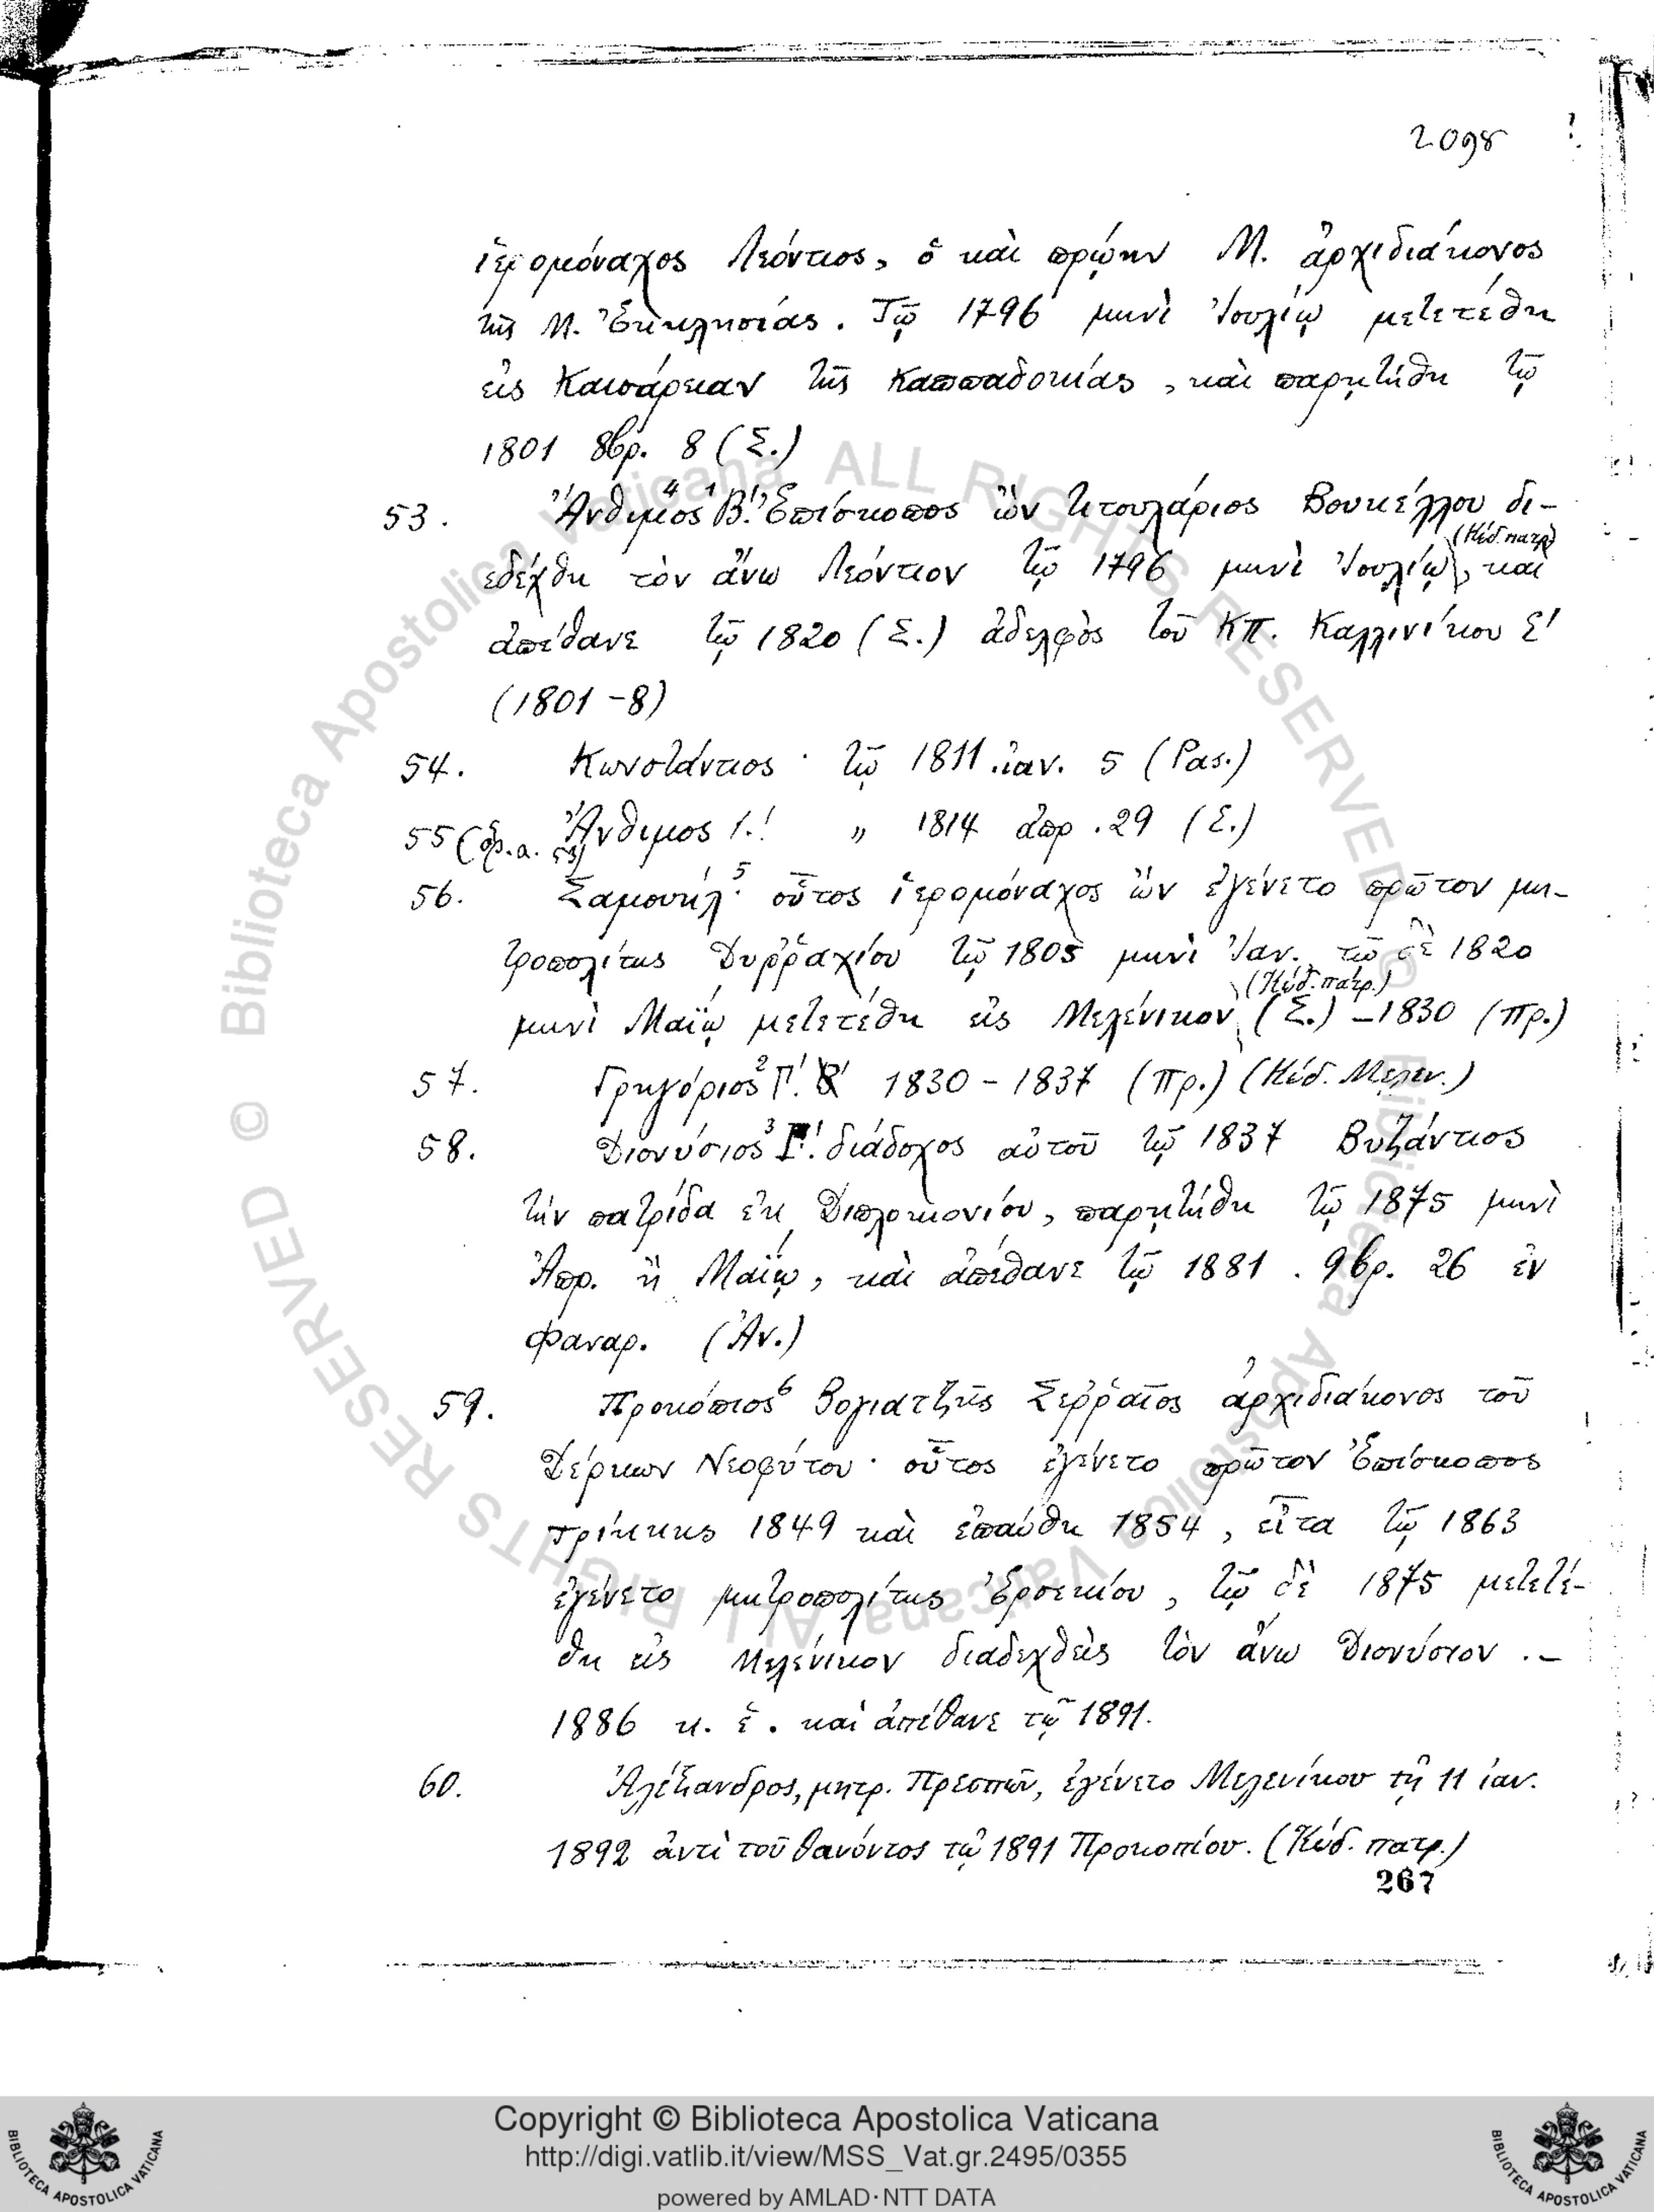 2098
ἱερομόναχος Λεόντιος, ὁ καὶ πρώην Μ. ἀρχιδιάκονος
τῆς Μ. Ἐκκλησίας. Τῷ 1796 μηνὶ Ἰουλίῳ μετετέθη
εἰς Καισάρειαν τῆς Καππαδοκίας, καὶ παρῃτήθη τῷ
1801 8βρ. 8 (Σ.)
53. Ἄνθιμος⁴ Β.' Ἐπίσκοπος ὢν τιτουλάριος Βουκέλλου δι-
εδέχθη τὸν ἄνω Λεόντιον τῷ 1796 μηνὶ Ἰουλίῳ (Κώδ. πατρ), καὶ
ἀπέθανε τῷ 1820 (Σ.) ἀδελφὸς τοῦ ΚΠ. Καλλινίκου Ε'
(1801-8)
54. Κωνστάντιος · τῷ 1811 ἰαν. 5 (Ρας.)
55 (ὅρ. α. 53) Ἄνθιμος „ 1814 ἀπρ. 29 (Σ.)
56. Σαμουήλ⁵· οὗτος ἱερομόναχος ὢν ἐγένετο πρῶτον μη-
τροπολίτης Δυῤῥαχίου τῷ 1805 μηνὶ Ἰαν. τῷ δὲ 1820
μηνὶ Μαΐῳ μετετέθη εἰς Μελένικον (Κώδ. πατρ.) (Σ.) – 1830 (Πρ.)
57. Γρηγόριος² Γ.' 1830 – 1837 (Πρ.) (Κώδ. Μελεν.)
58. Διονύσιος³ Γ'. διάδοχος αὐτοῦ τῷ 1837 Βυζάντιος
τὴν πατρίδα ἐκ Διπλοκιονίου, παρῃτήθη τῷ 1875 μηνὶ
Ἀπρ. ἢ Μαΐῳ, καὶ ἀπέθανε τῷ 1881 . 9βρ. 26 ἐν
Φαναρ. (Ἀν.)
59. Προκόπιος⁶ Βογιατζῆς Σεῤῥαῖος ἀρχιδιάκονος τοῦ
Δέρκων Νεοφύτου · οὗτος ἐγένετο πρῶτον Ἐπίσκοπος
Τρίκκης 1849 καὶ ἐπαύθη 1854, εἶτα τῷ 1863
ἐγένετο μητροπολίτης Ἐρσεκίου, τῷ δὲ 1875 μετετέ-
θη εἰς Μελένικον διαδεχθεὶς τὸν ἄνω Διονύσιον . –
1886 κ. ἑ. καὶ ἀπέθανε τῷ 1891.
60. Ἀλέξανδρος, μητρ. Πρεσπῶν, ἐγένετο Μελενίκου τῇ 11 ἰαν.
1892 ἀντὶ τοῦ θανόντος τῷ 1891 Προκοπίου. (Κώδ. πατρ.)
267
© Biblioteca Apostolica Vaticana ALL RIGHTS RESERVED © Biblioteca Apostolica Vaticana ALL RIGHTS RESERVED
Copyright © Biblioteca Apostolica Vaticana
http://digi.vatlib.it/view/MSS_Vat.gr.2495/0355
powered by AMLAD·NTT DATA
BIBLIOTECA APOSTOLICA VATICANA
BIBLIOTECA APOSTOLICA VATICANA